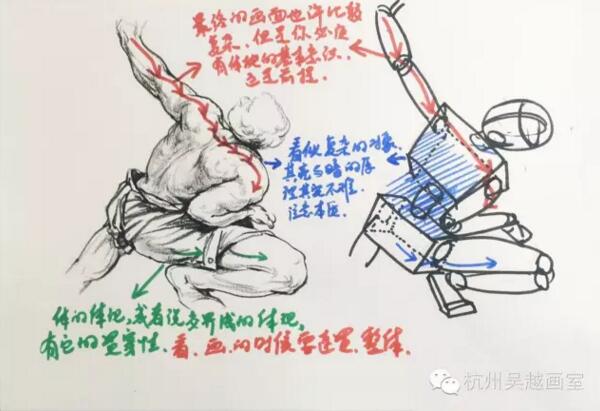 最终的画面也许比较
复杂，但是你必须
有体块的基本意识，
这是前提
看似复杂的对象，
其亮与暗的原
理其实不难，
注意本质．
体的体现，或者说多界成的体现，
有它的贯穿性．看、画的时候要连贯、整体．
杭州吴越画室